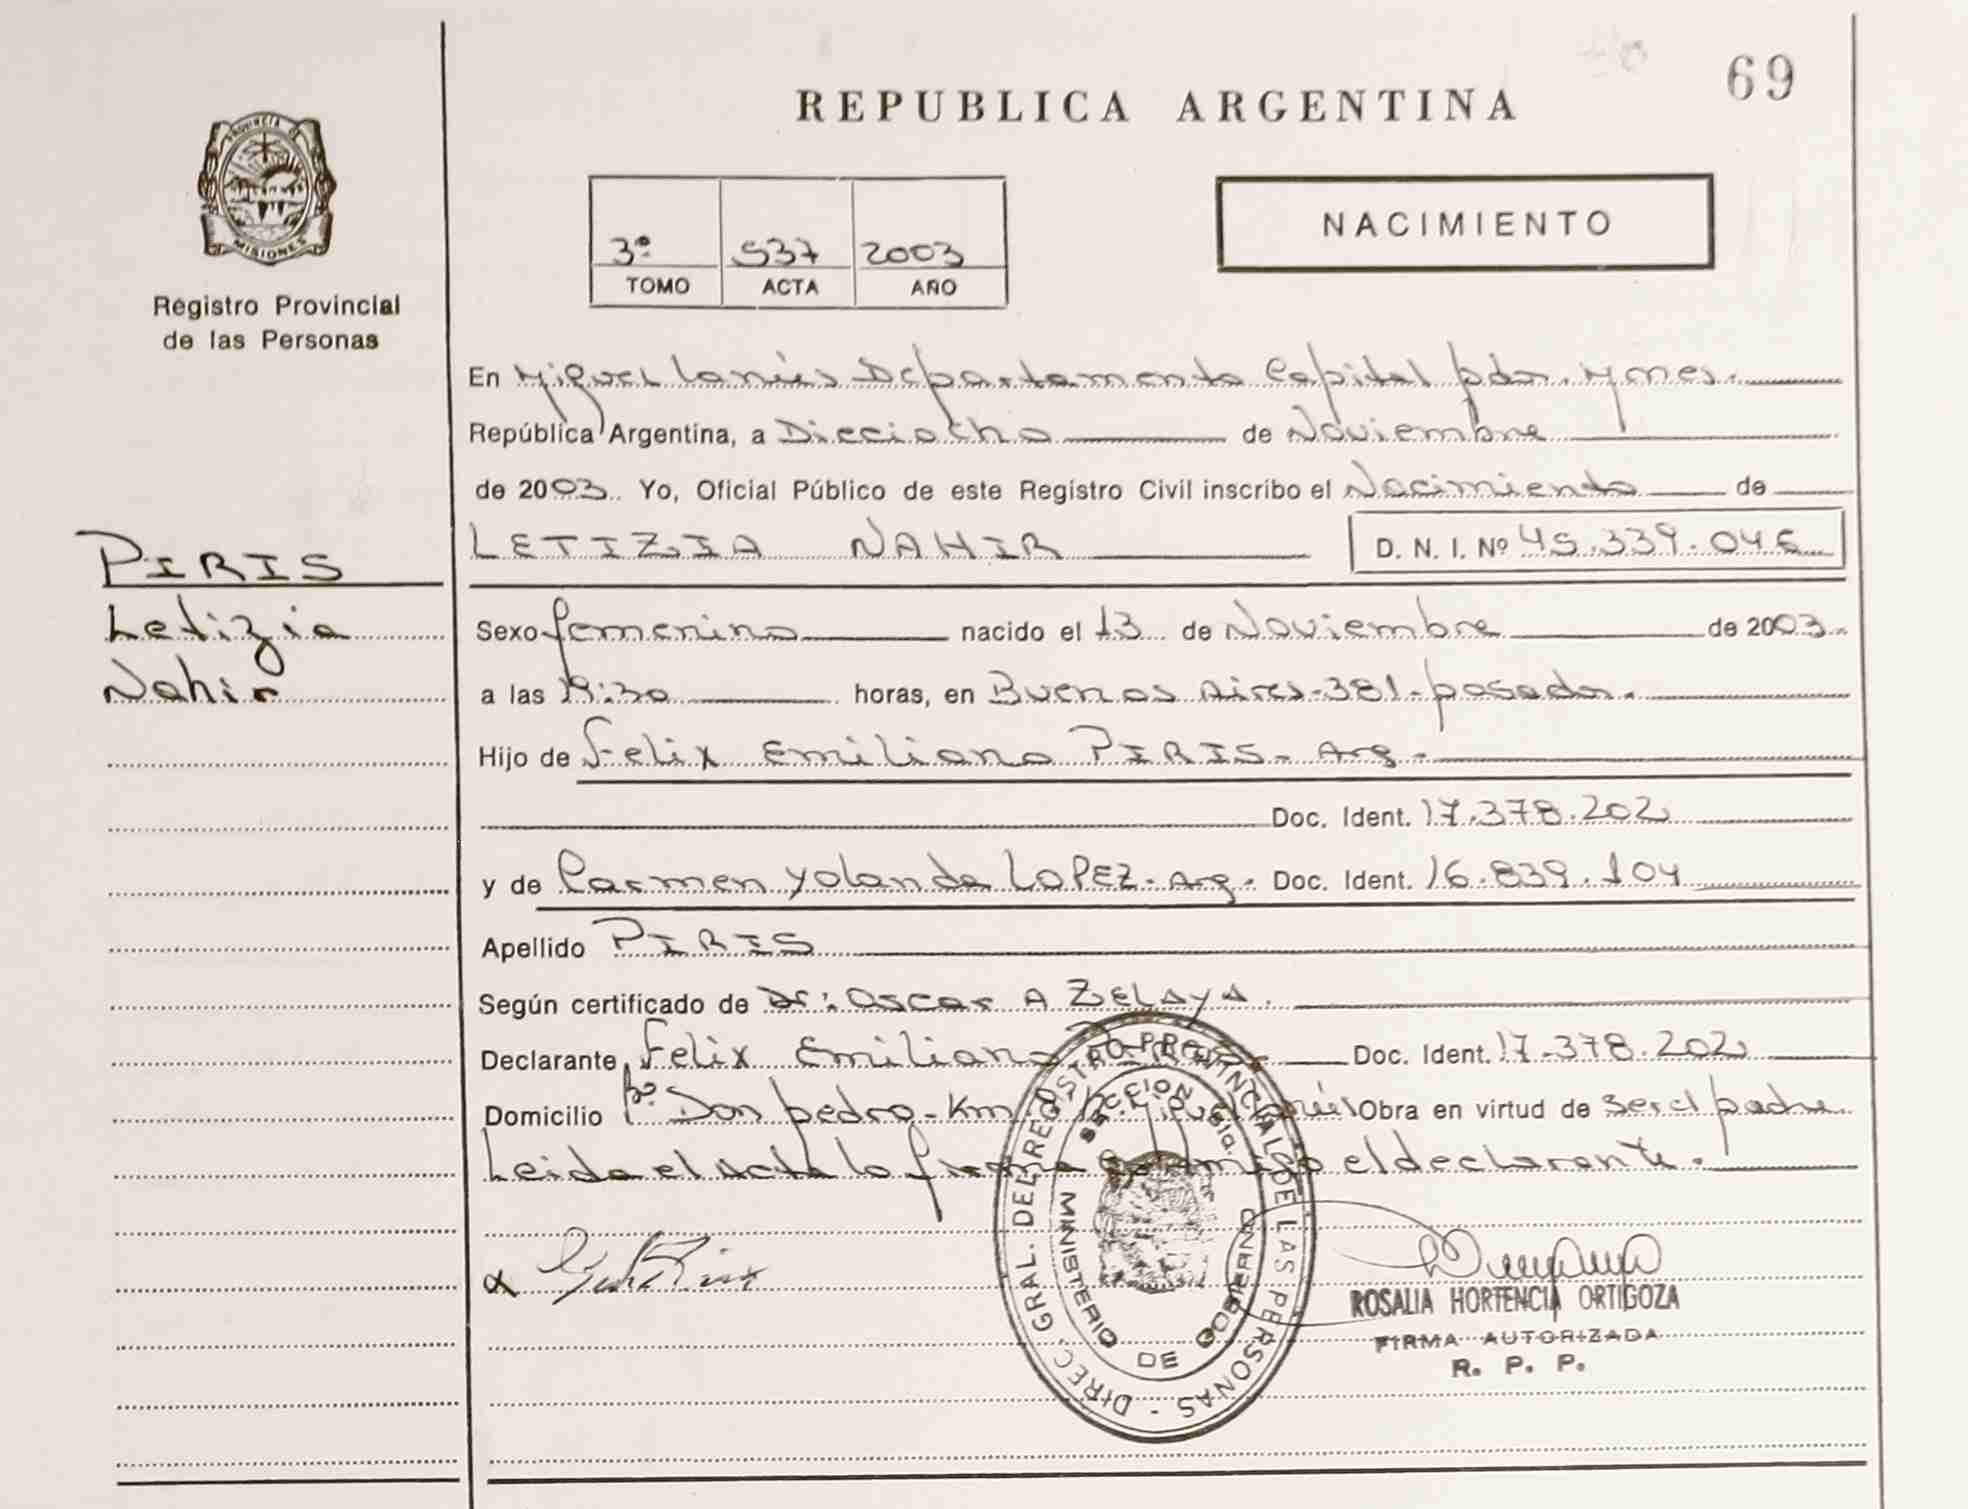 69
REPUBLICA ARGENTINA
PROVINCIA DE
MISIONES
Registro Provincial
de las Personas
3º 537 2003
TOMO ACTA AÑO
NACIMIENTO
En Miguel Lanús Departamento Capital pdas. Mnes.
República Argentina, a Dieciocho de Noviembre
de 2003. Yo, Oficial Público de este Registro Civil inscribo el Nacimiento de
PIRIS
Letizia
Nahir
LETIZIA NAHIR D. N. I. Nº 45.339.046
Sexo femenino nacido el 13 de Noviembre de 2003.
a las 19:30 horas, en Buenos Aires-381-posadas.
Hijo de Felix Emiliano PIRIS-Arg-
Doc. Ident. 17.378.202
y de Carmen Yolanda LOPEZ-Arg. Doc. Ident. 16.839.104
Apellido PIRIS
Según certificado de Dr: Oscar A ZELAYA.
Declarante Felix Emiliano Doc. Ident. 17.378.202
Domicilio Bº. Don pedro-Km Miguel Lanús Obra en virtud de ser el padre
Leida el Acta lo firma conmigo el declarante.
DIREC. GRAL. DEL REGISTRO PROVINCIAL DE LAS PERSONAS
MINISTERIO DE GOBIERNO
ROSALIA HORTENCIA ORTIGOZA
FIRMA AUTORIZADA
R. P. P.